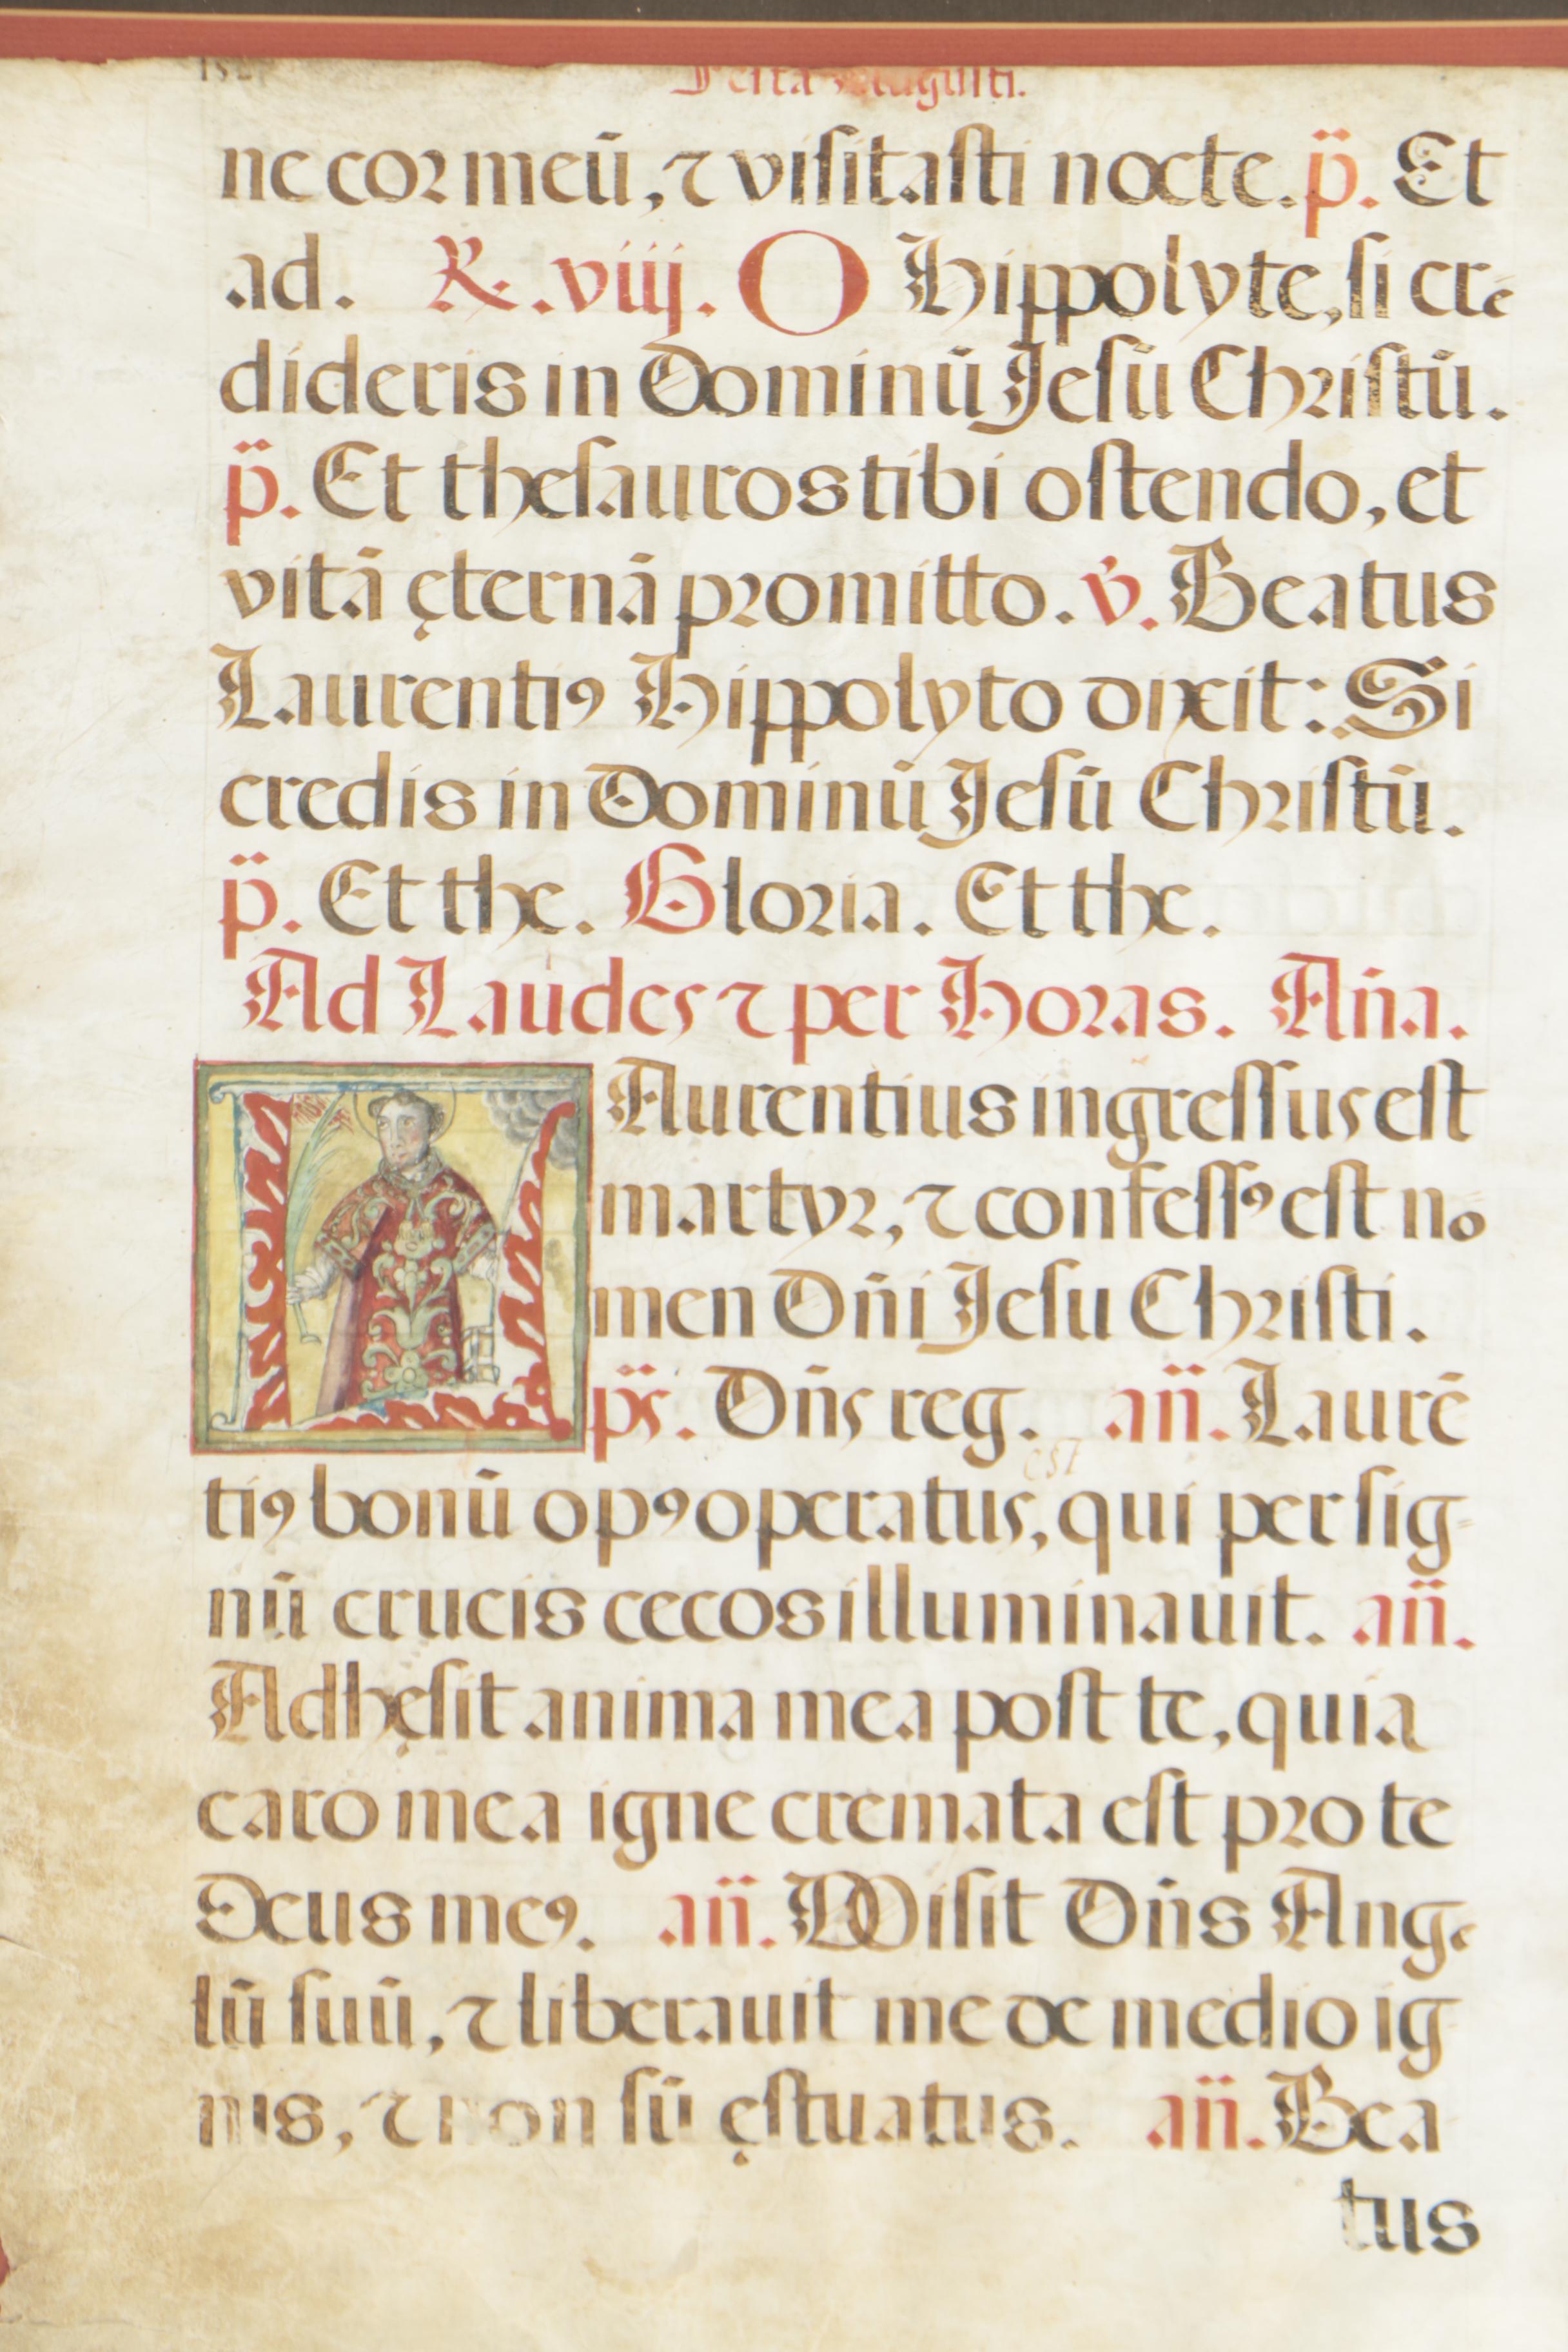 Festa Augusti.
ne cor meū, ⁊ visitasti nocte. p̈. Et
ad. ℟. viij. O Hippolyte, si cre
dideris in Dominū Jesū Christū.
p̈. Et thesauros tibi ostendo, et
vitā ęternā promitto. v̇. Beatus
Laurentiꝰ Hippolyto dixit: Si
credis in Dominū Jesū Christū.
p̈. Et the. Gloria. Et the.
Ad Laudes ⁊ per Horas. Añа.
LAurentius ingressus est
martyr, ⁊ confessꝰ est no
men Dñi Jesu Christi.
ps̈. Dñs reg. an̈. Laurē
tiꝰ bonū opꝰ operatus, est qui per sig-
nū crucis cecos illuminauit. an̈.
Adhęsit anima mea post te, quia
caro mea igne cremata est pro te
Deus meꝰ. an̈. Misit Dñs Ange
lū suū, ⁊ liberauit me de medio ig
nis, ⁊ non sū ęstuatus. an̈. Bea
tus